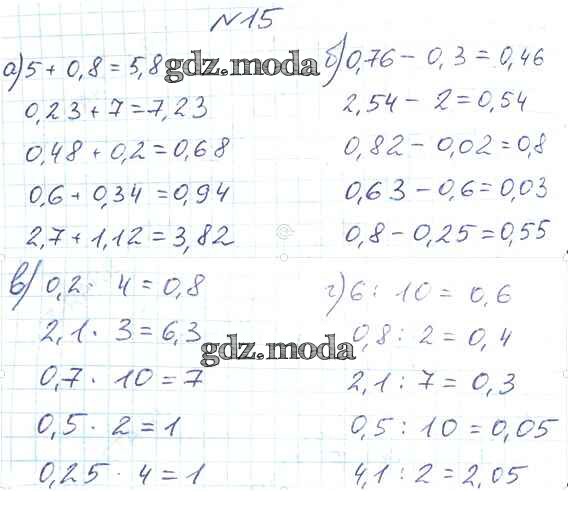 №15
а) 5 + 0,8 = 5,8
0,23 + 7 = 7,23
0,48 + 0,2 = 0,68
0,6 + 0,34 = 0,94
2,7 + 1,12 = 3,82
gdz.moda
б) 0,76 - 0,3 = 0,46
2,54 - 2 = 0,54
0,82 - 0,02 = 0,8
0,63 - 0,6 = 0,03
0,8 - 0,25 = 0,55
в) 0,2 · 4 = 0,8
2,1 · 3 = 6,3
0,7 · 10 = 7
0,5 · 2 = 1
0,25 · 4 = 1
gdz.moda
г) 6 : 10 = 0,6
0,8 : 2 = 0,4
2,1 : 7 = 0,3
0,5 : 10 = 0,05
4,1 : 2 = 2,05